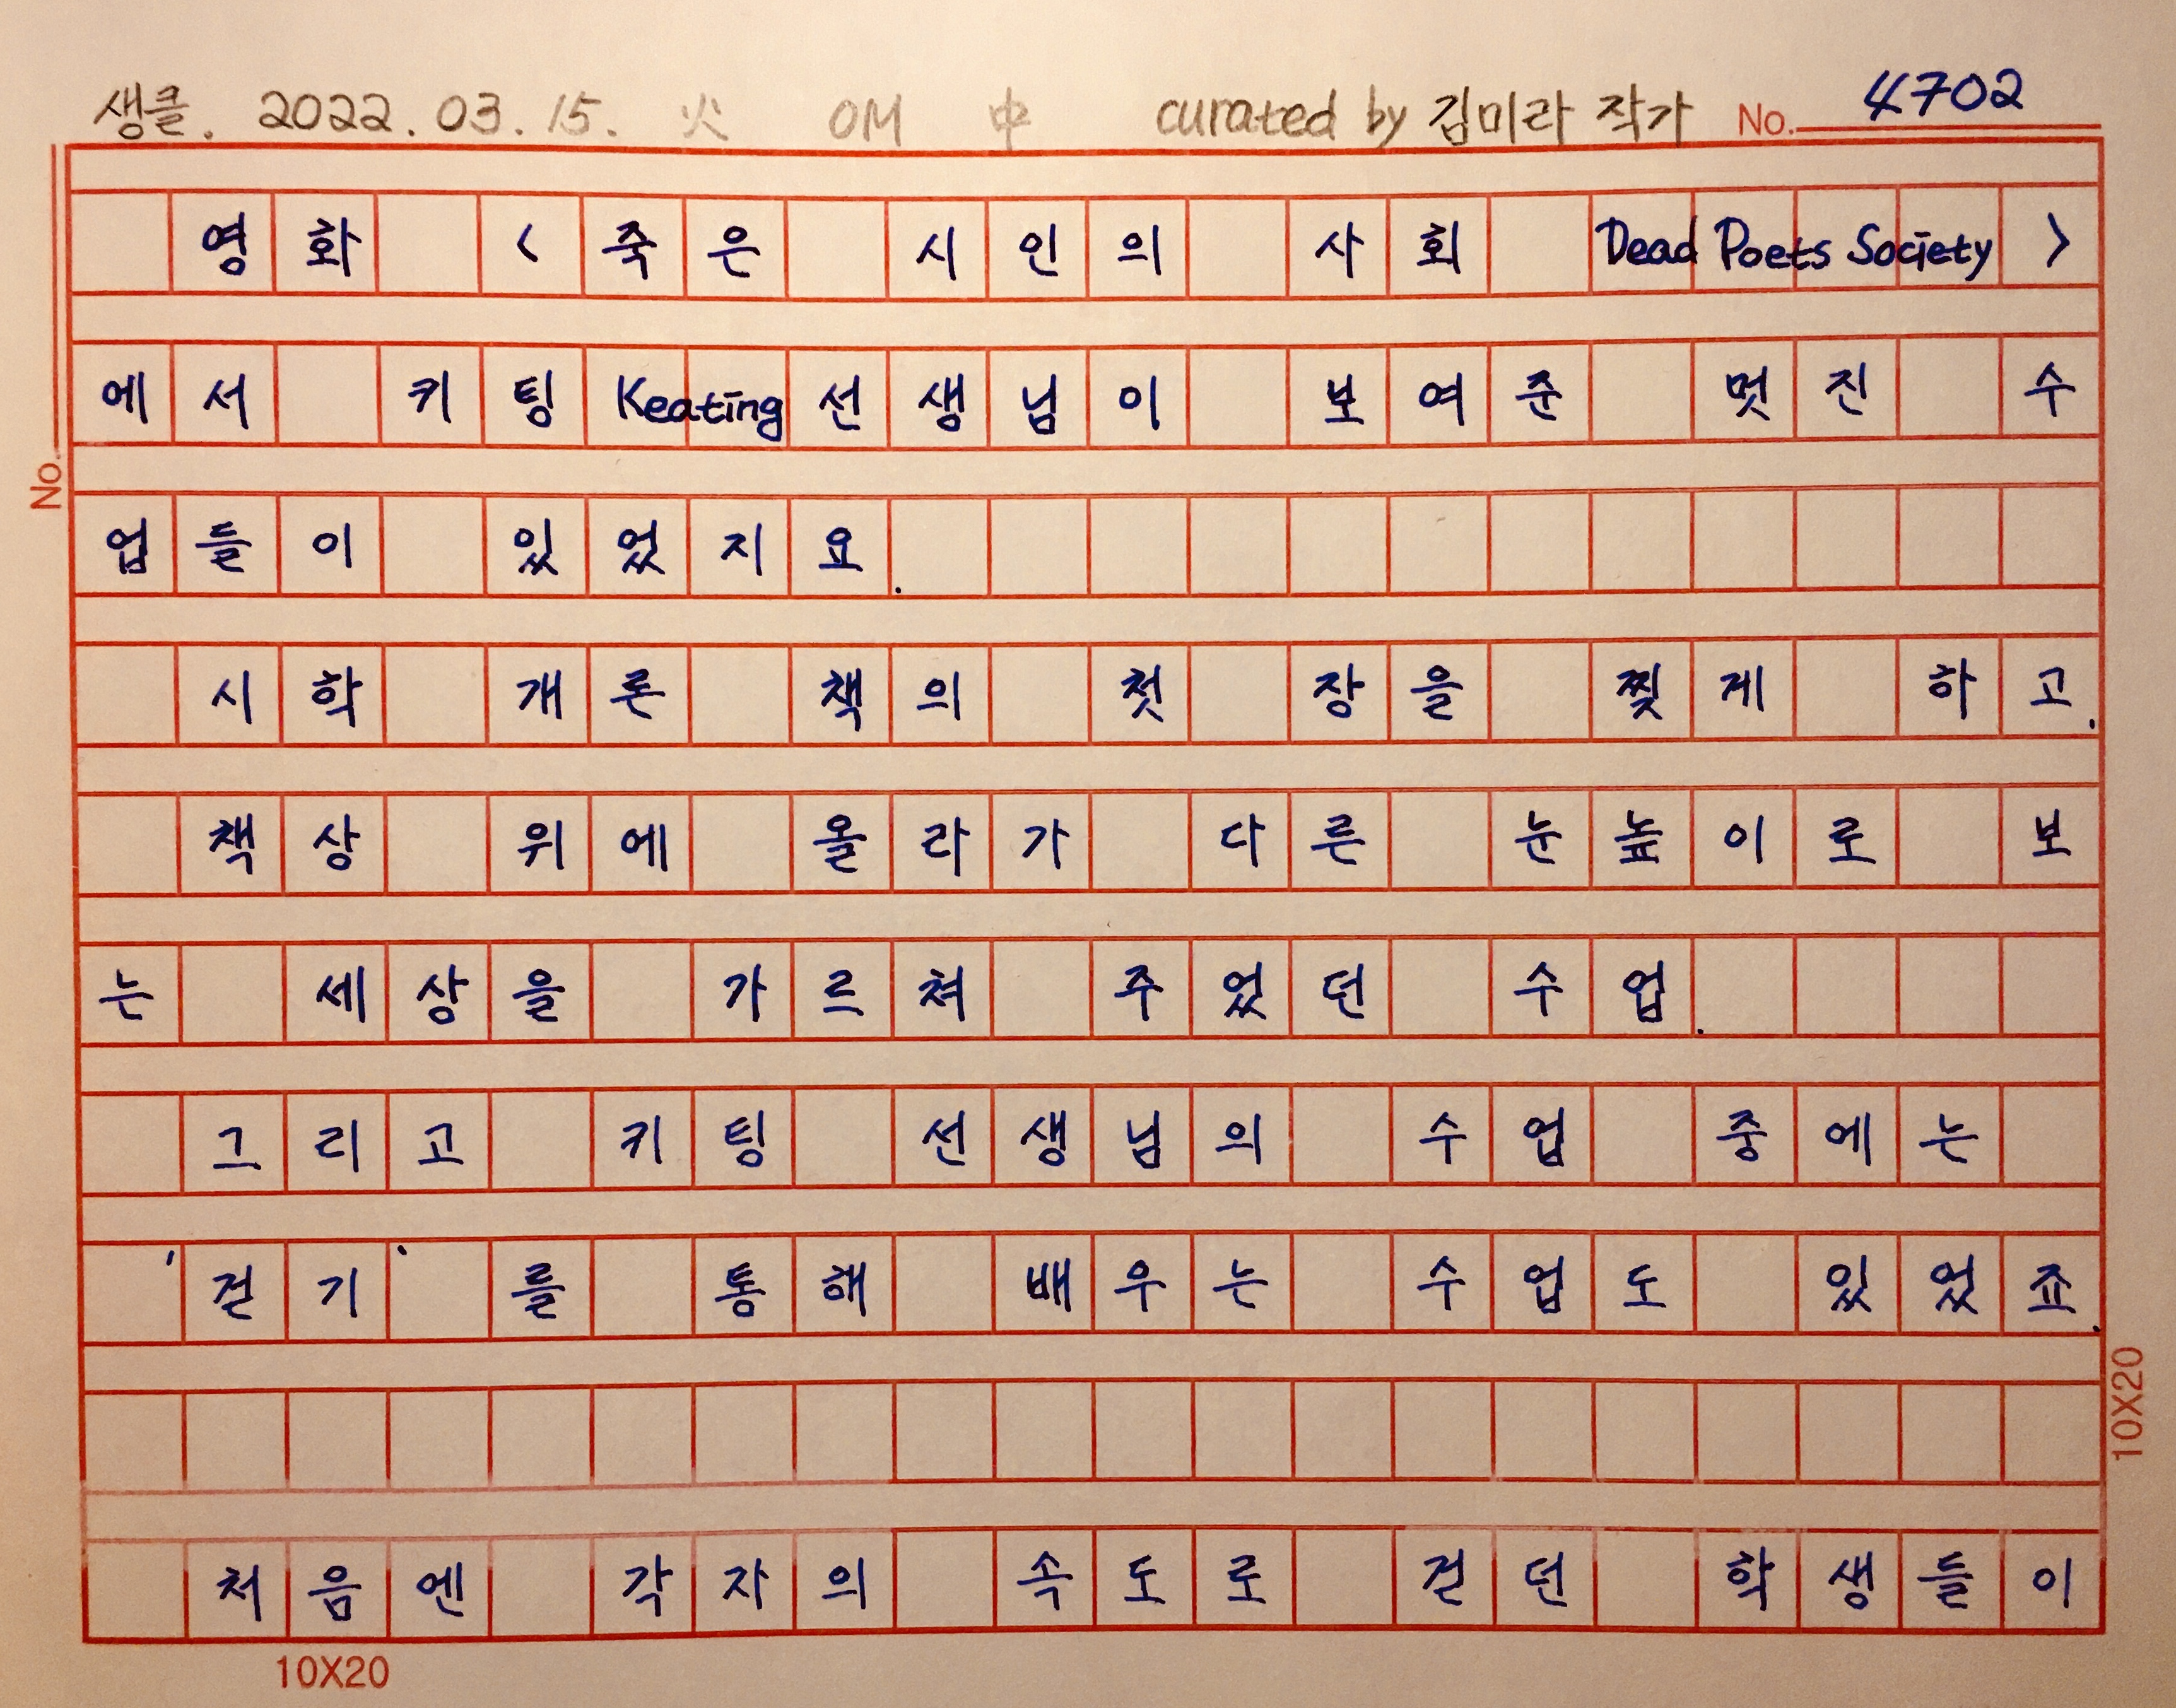 생클. 2022.03.15. 火 OM 中 curated by 김미라 작가 No. 4702
영화 <죽은 시인의 사회 Dead Poets Society>
에서 키팅 Keating 선생님이 보여준 멋진 수
업들이 있었지요.
시학 개론 책의 첫 장을 찢게 하고.
책상 위에 올라가 다른 눈높이로 보
는 세상을 가르쳐 주었던 수업.
그리고 키팅 선생님의 수업 중에는
'걷기'를 통해 배우는 수업도 있었죠.
처음엔 각자의 속도로 걷던 학생들이
No.
10X20
10X20